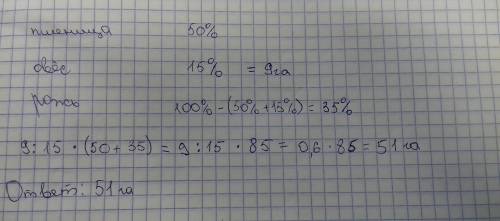 пшеница 50%
овёс 15% = 9га
рожь 100% - (50% + 15%) = 35%
9 : 15 · (50 + 35) = 9 : 15 · 85 = 0,6 · 85 = 51 га
Ответ: 51 га